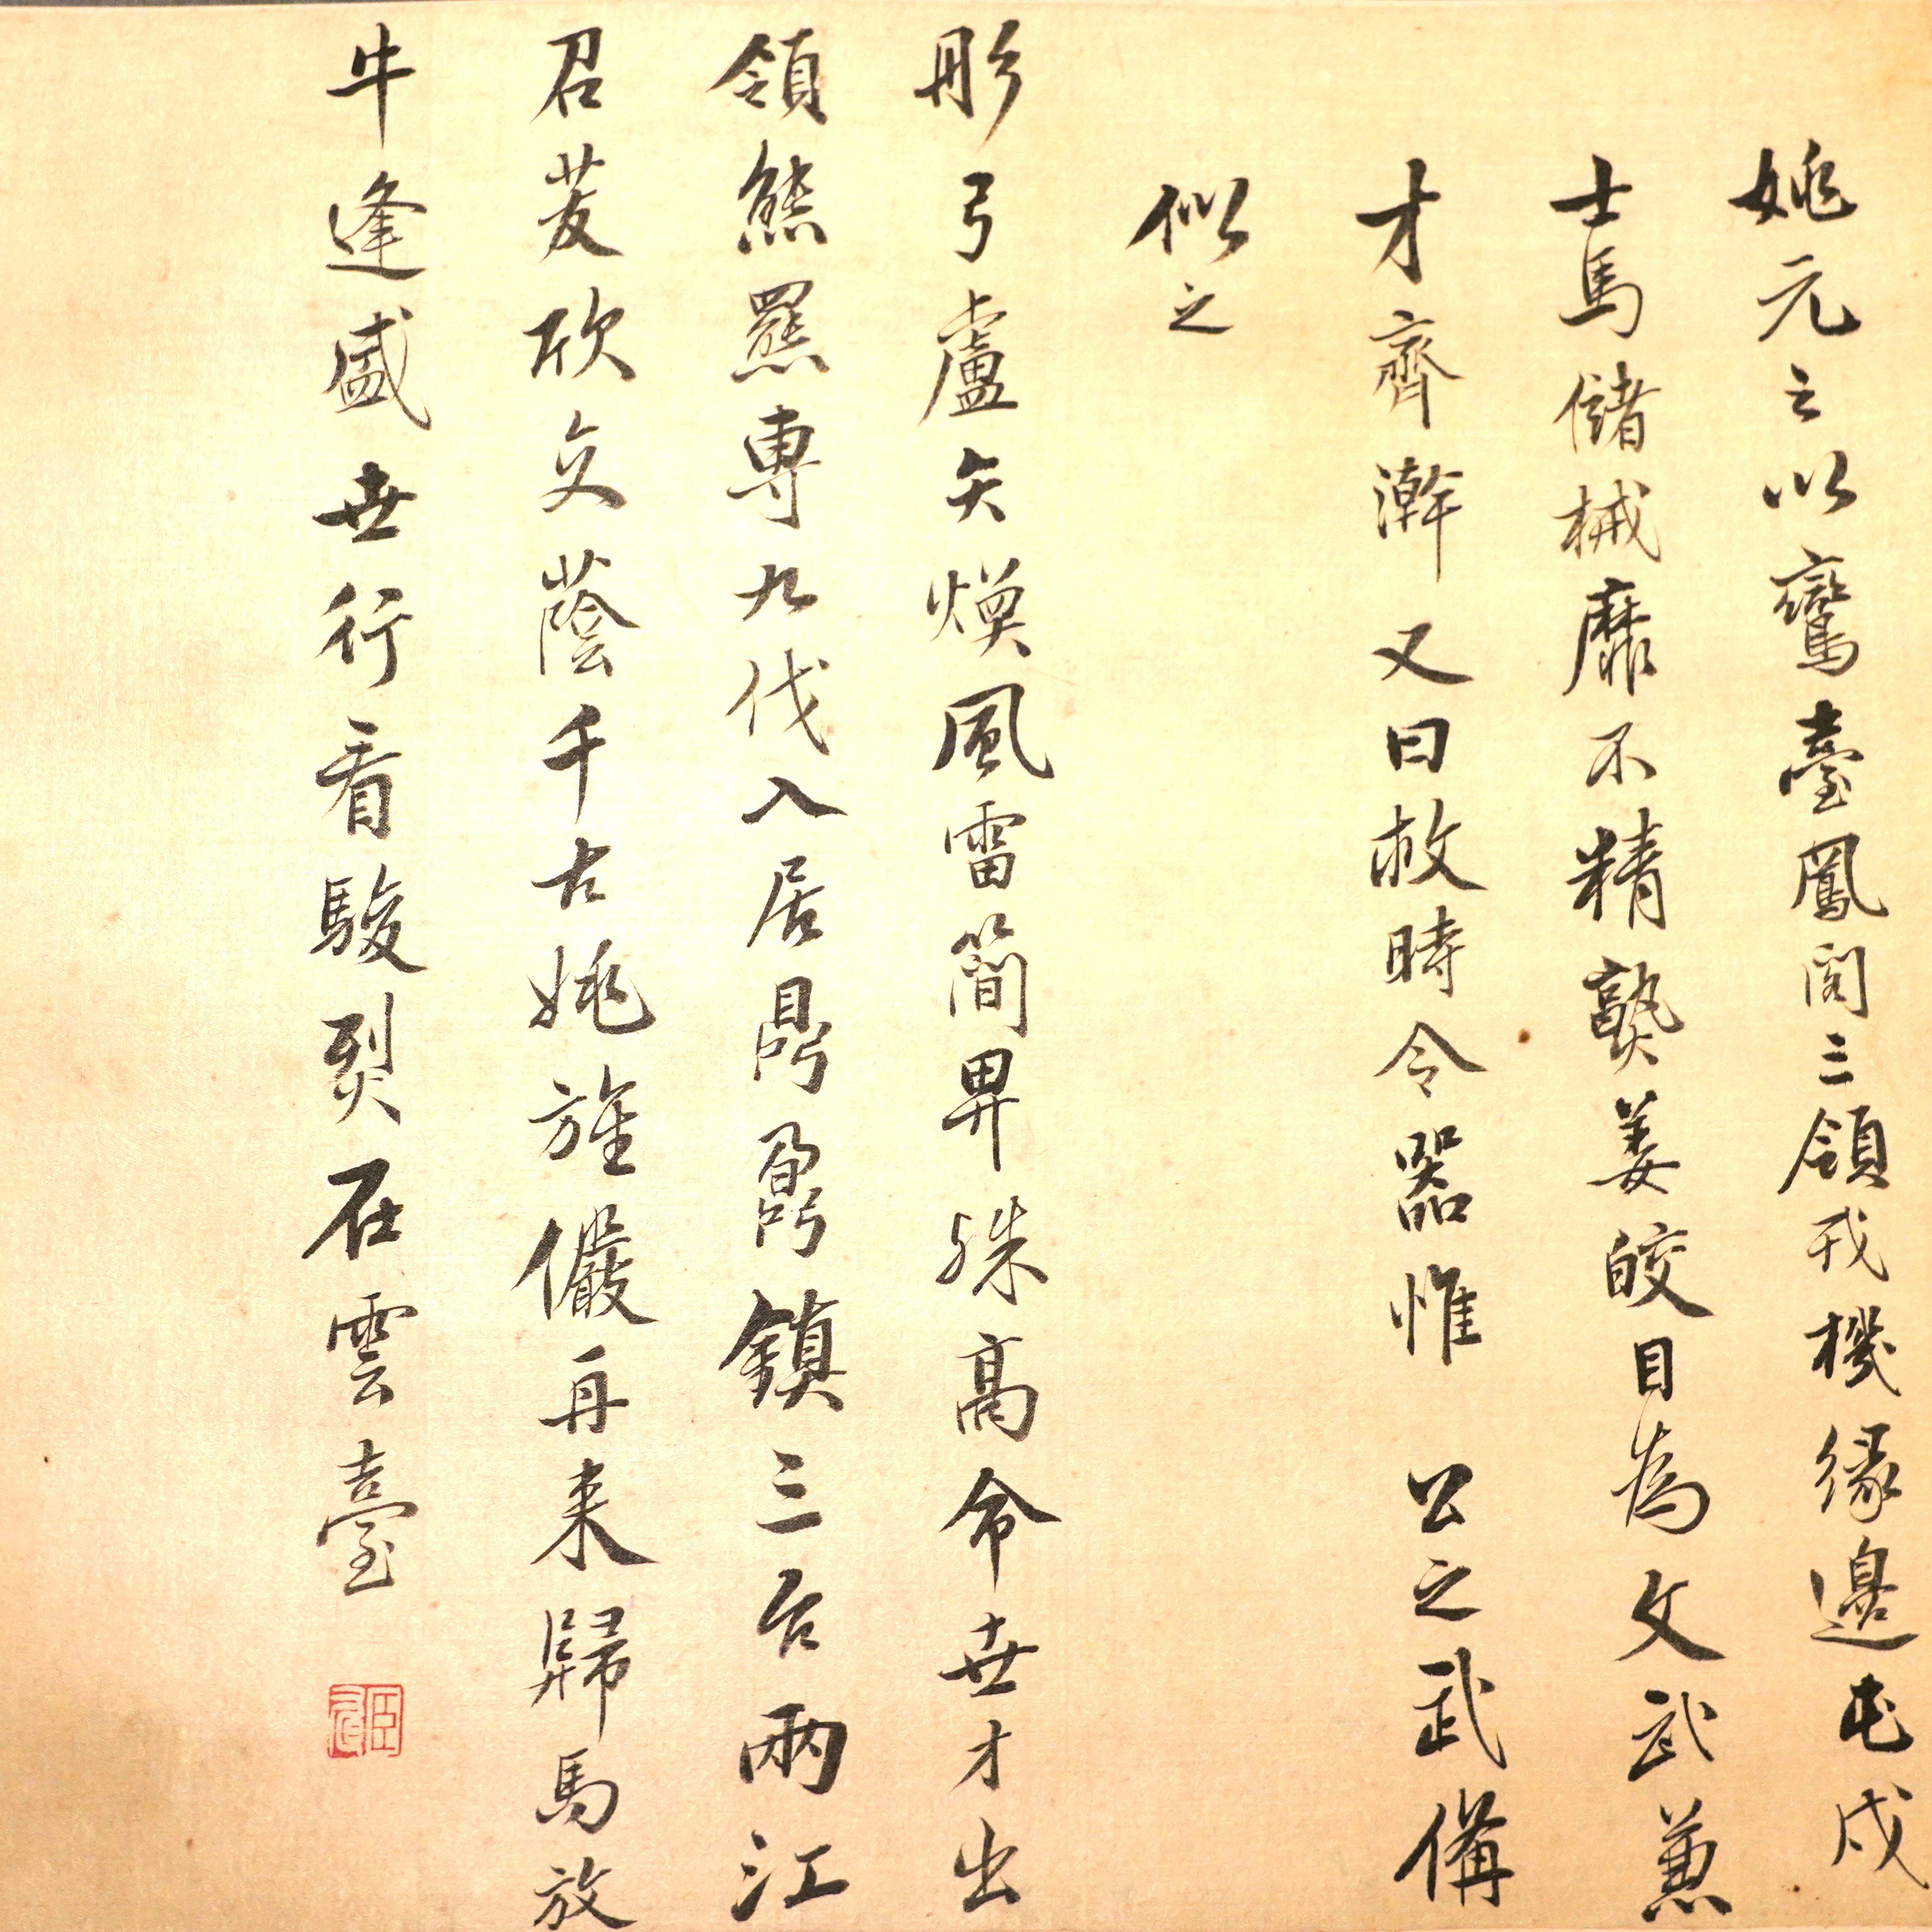 姚元之以鸞臺鳳閣三領戎機緣邊屯戍
士馬儲械靡不精熟姜皎目為文武兼
才齊澣又曰救時令器惟 公之武備
似之
彤弓盧矢煥風雷簡畀殊高命世才出
領熊羆專九伐入居鼎鼐鎮三台兩江
召茇欣交蔭千古姚旌儼再来歸馬放
牛逢盛世行看駿烈在雲臺